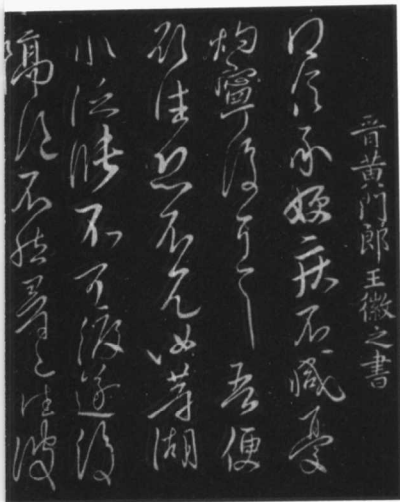 晉黃門郎王徽之書
信承嫂疾不減憂
灼寧復可言 吾便
欲往恐不見汝等湖
水泛漲不可渡遂復
隔不尋往彼